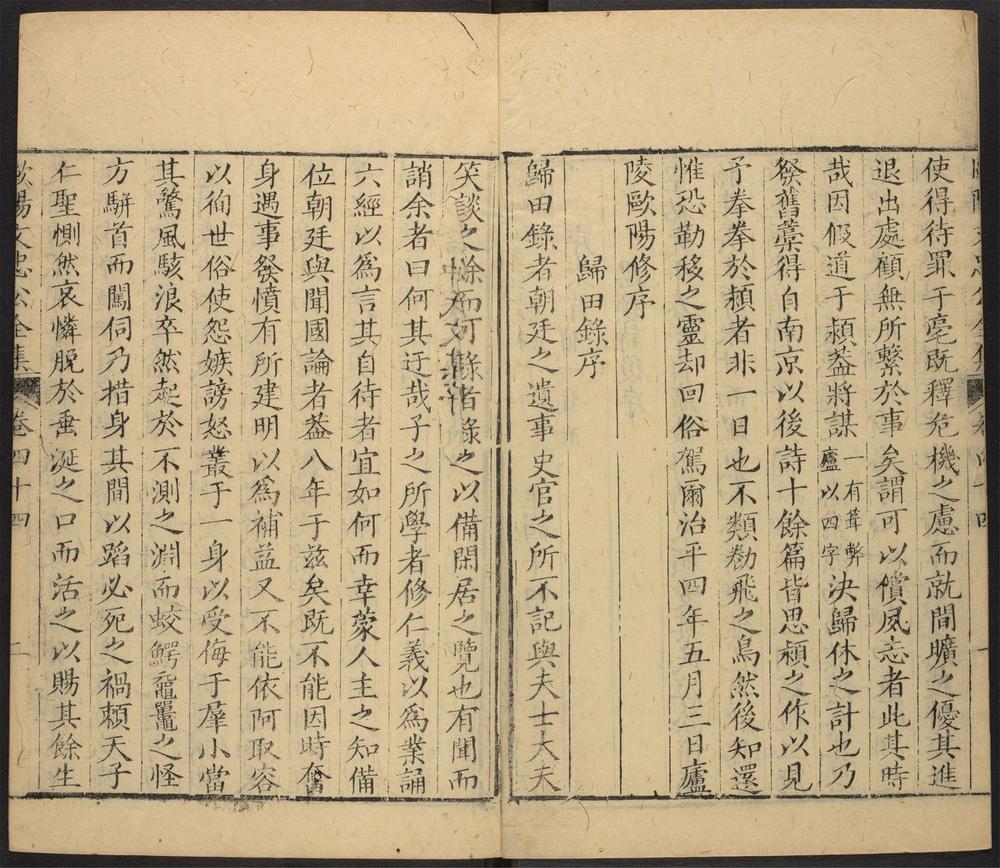 使得待罪于亳既釋危機之慮而就閒曠之優其進
退出處顧無所繫於事矣謂可以償夙志者此其時
哉因假道于潁葢將謀一有葺弊廬以四字決歸休之計也乃
發舊藁得自南京以後詩十餘篇皆思潁之作以見
予拳拳於潁者非一日也不類勌飛之鳥然後知還
惟恐勒移之靈却回俗駕爾治平四年五月三日廬
陵歐陽修序
歸田錄序
歸田錄者朝廷之遺事史官之所不記與夫士大夫
笑談之餘而可錄者錄之以備閑居之覽也有聞而
誚余者曰何其迂哉子之所學者修仁義以爲業誦
六經以爲言其自待者宜如何而幸蒙人主之知備
位朝廷與聞國論者葢八年于兹矣既不能因時奮
身遇事發憤有所建明以爲補益又不能依阿取容
以徇世俗使怨嫉謗怒叢于一身以受侮于羣小當
其驚風駭浪卒然起於不測之淵而蛟鰐黿鼉之怪
方駢首而闖伺乃措身其間以蹈必死之禍頼天子
仁聖惻然哀憐脫於垂涎之口而活之以賜其餘生
歐陽文忠公全集 卷四十四 二